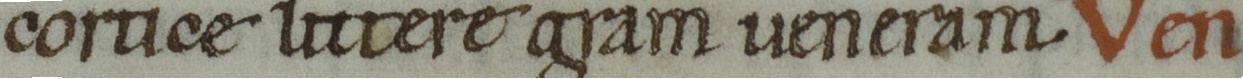 cortice littere gram ueneram. Ven